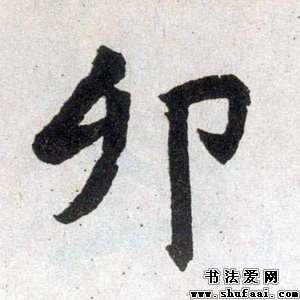 卯
书法爱网
www.shufaai.com